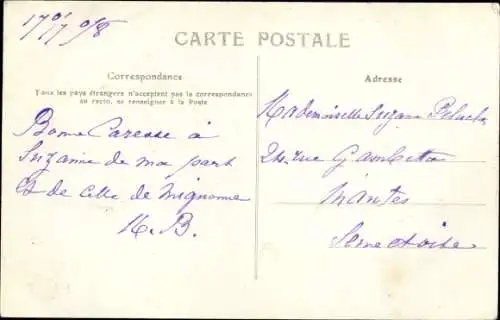 CARTE POSTALE
Correspondance
Tous les pays étrangers n'acceptent pas la correspondance
au recto, se renseigner à la Poste
Bonne Caresse à
Suzanne de ma part
et de celle de Mignonne
M. B.
Adresse
Mademoiselle Suzanne
rue Gambetta
Mantes
Seine et oise